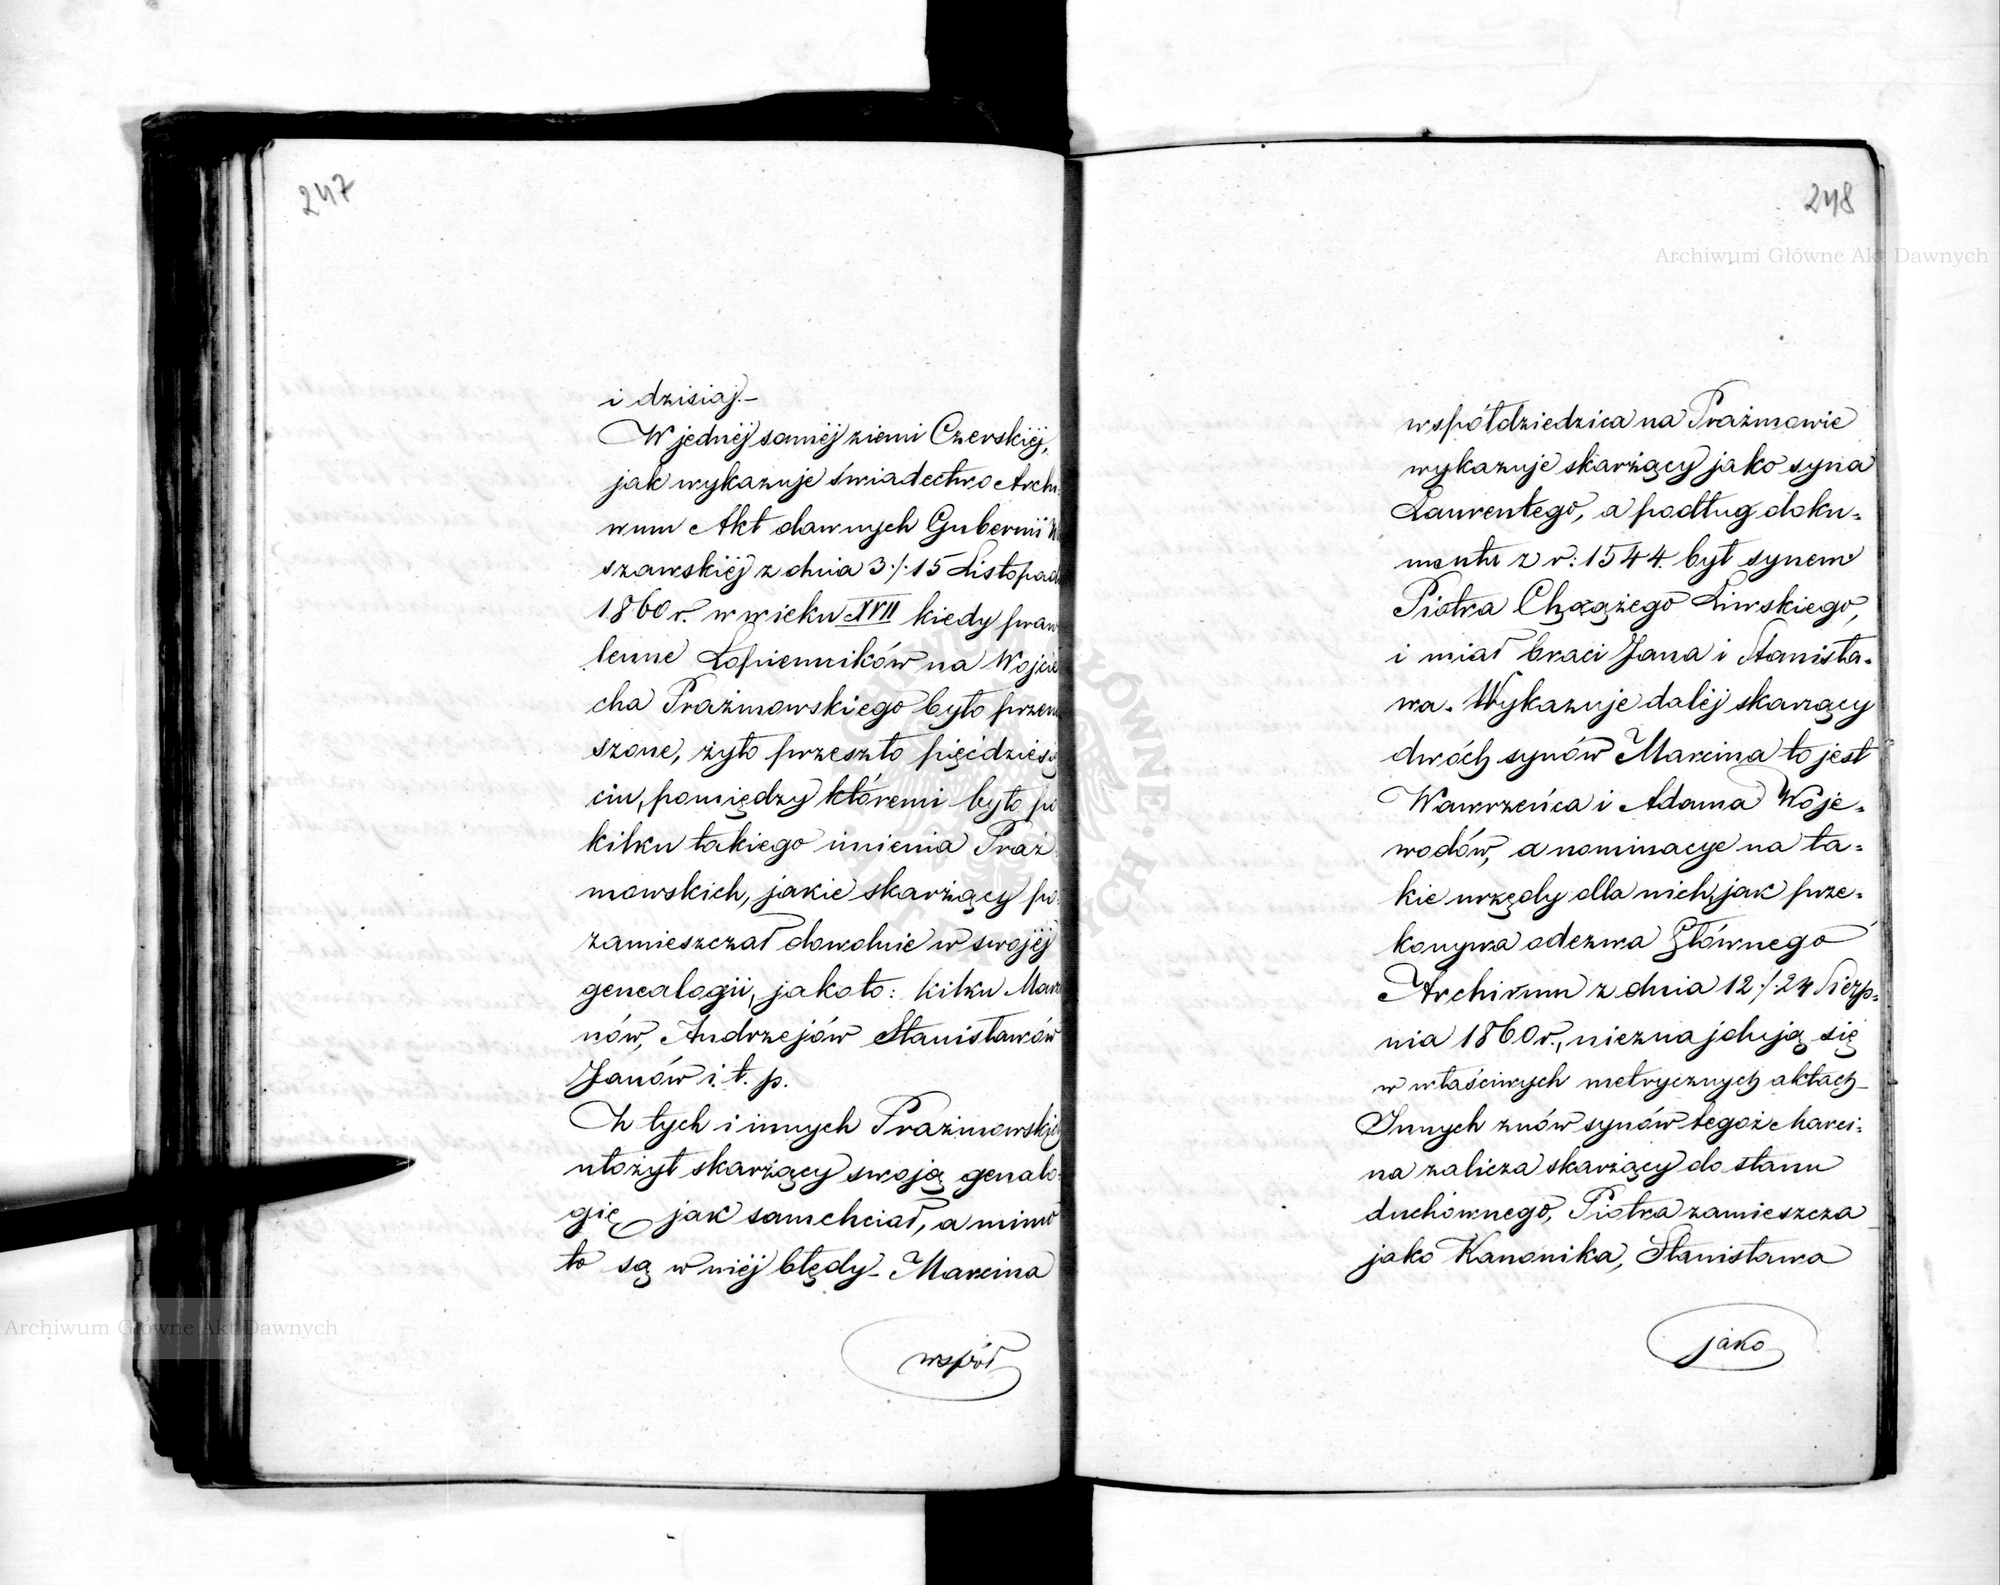 247
i dzisiaj.–
W jednéj saméj ziemi Czerskiéj,
jak wykazuje świadectwo Archi
wum Akt dawnych Gubernii W
szawskiéj z dnia 3./.15 Listopad
1860 r. w wieku XVII kiedy praw
lenne Łopienników na Wojcie
cha Prażmowskiego było przen
szone, żyło przeszło pięćdziesię
ciu, pomiędzy któremi było po
kilku takiego imienia Praż
mowskich, jakie skarżący po
zamieszczał dowolnie w swojéj
genealogii, jakoto: kilku Marci
nów, Andrzejów Stanisławów
Janów i. t. p.
Z tych i innych Prażmowskich
ułożył skarżący swoją genalo-
gię jak sam chciał, a mimo
to są w niéj błędy – Marcina
współ
248
współdziedzica na Prażmowie
wykazuje skarżący jako syna
Laurentego, a podług doku-
mentu z r: 1544. był synem
Piotra Chorążego Liwskiego,
i miał braci Jana i Stanisła-
wa. Wykazuje daléj skarżący
dwóch synów Marcina to jest
Wawrzeńca i Adama Woje-
wodów, a nominacye na ta-
kie urzędy dla nich, jak prze-
konywa odezwa Głównego
Archiwum z dnia 12./.24 Sierp-
nia 1860 r., nieznajdują się
w właściwych metrycznych aktach –
Innych znów synów tegoż Marci-
na zalicza skarżący do stanu
duchownego, Piotra zamieszcza
jako Kanonika, Stanisława
jako
Archiwum Główne Akt Dawnych
Archiwum Główne Akt Dawnych